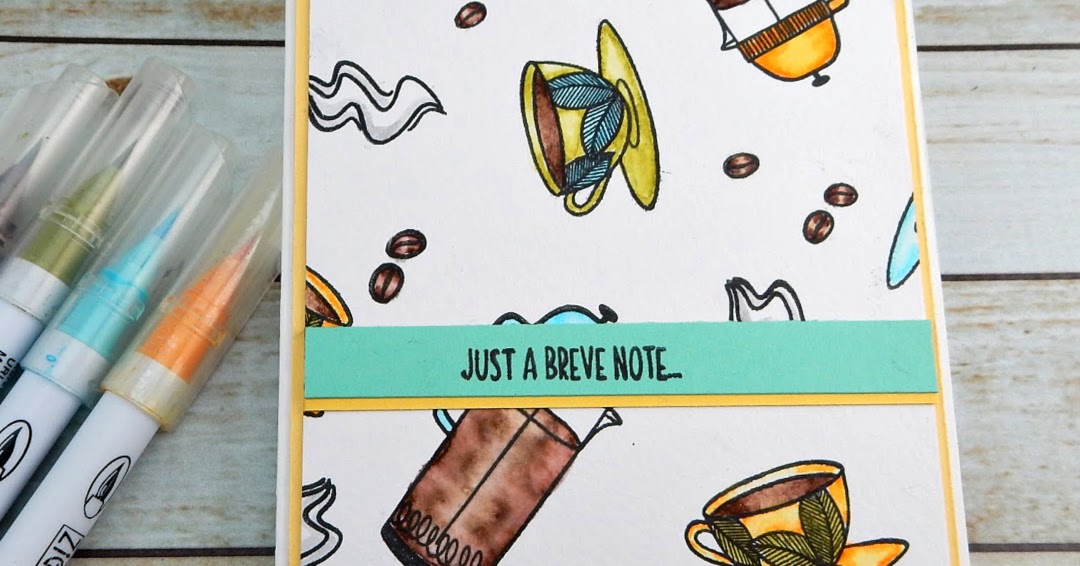 JUST A BREVE NOTE...
ZIG